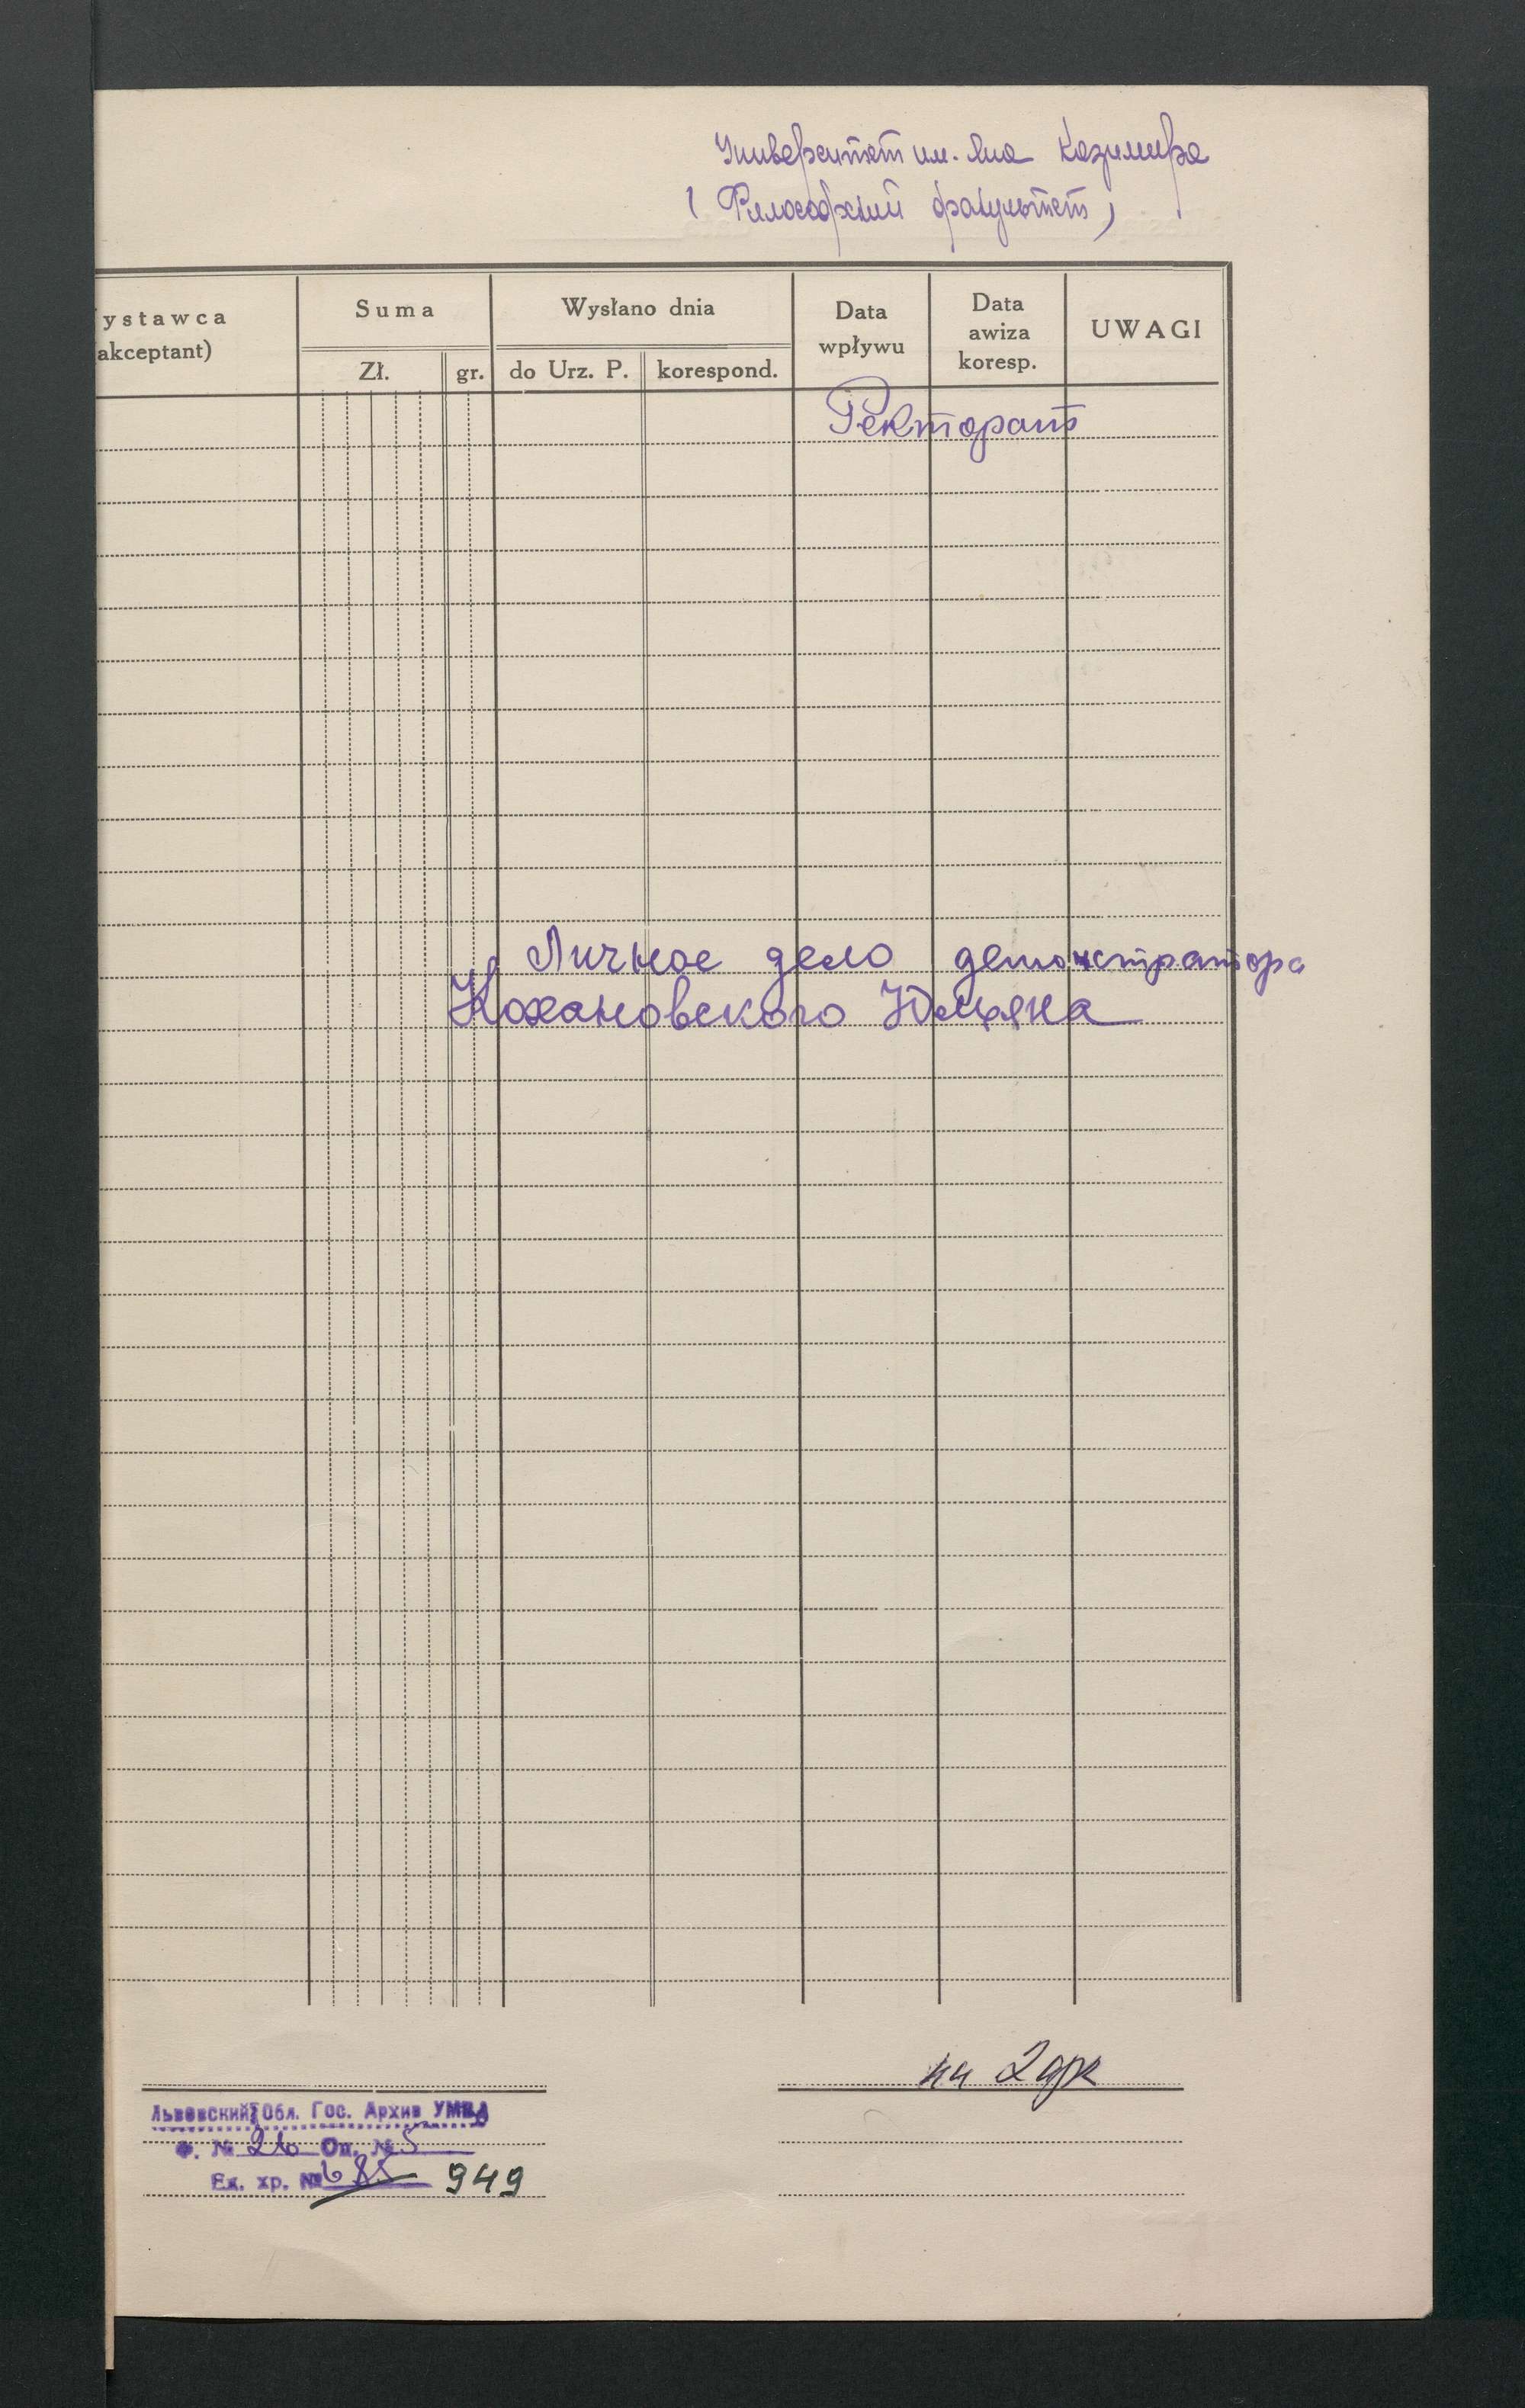 Университет им. Яна Казимира
( Философский факультет )
ystawca
akceptant)
Suma
Zł.
gr.
Wysłano dnia
do Urz. P.
korespond.
Data
wpływu
Data
awiza
koresp.
UWAGI
Ректорат
Личное дело демонстратора
Кохановского Юльяна
на 2
Львовский Обл. Гос. Архив УМВД
Ф. № 26 Оп. № 5
Ед. хр. № 685 949